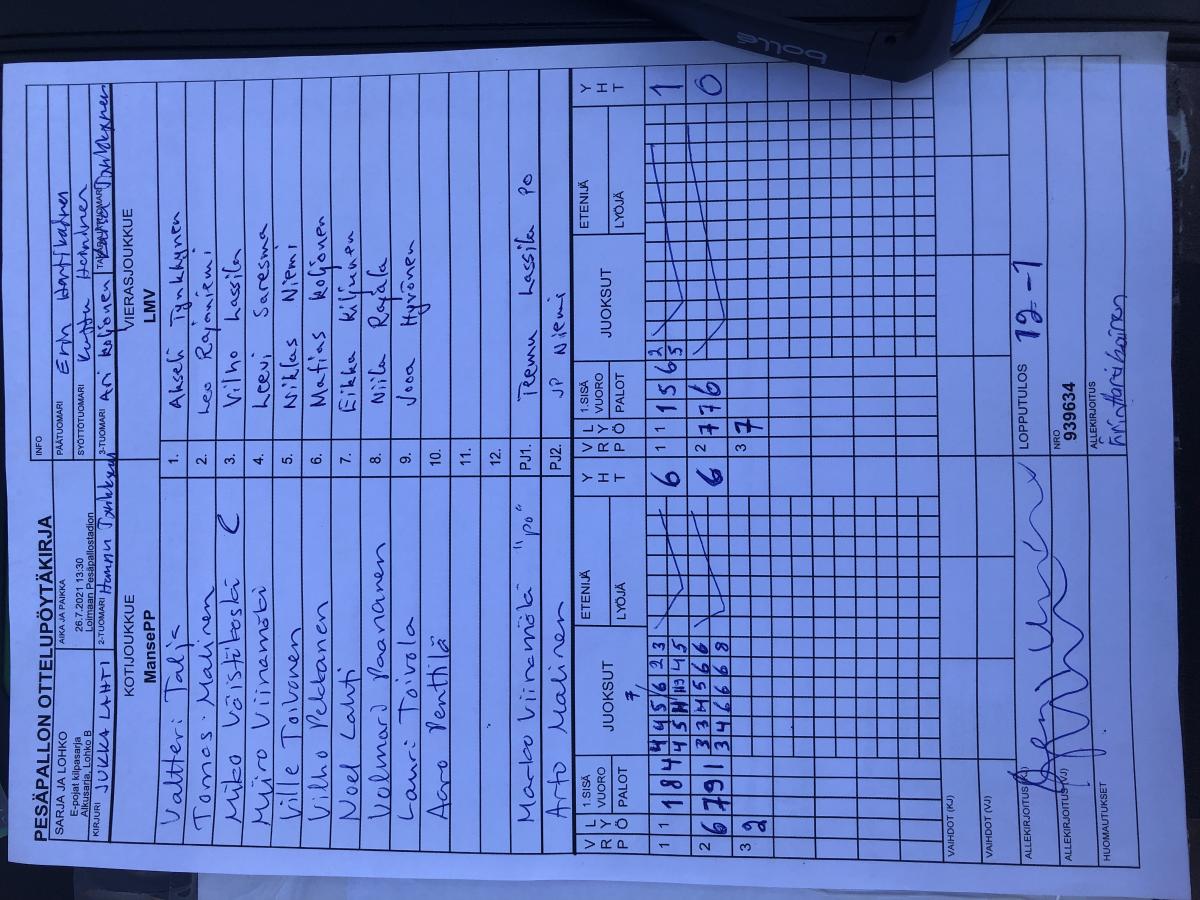 PESÄPALLON OTTELUPÖYTÄKIRJA
INFO
SARJA JA LOHKO
E-pojat kilpasarja
Alkusarja, Lohko B
AIKA JA PAIKKA
26.7.2021 13:30
Loimaan Pesäpallostadion
PÄÄTUOMARI
SYÖTTÖTUOMARI
KIRJURI JUKKA LAHTI
2-TUOMARI Hannu Tynkkynen
3-TUOMARI Ari Koljonen
KOTIJOUKKUE
MansePP
VIERASJOUKKUE
LMV
Valtteri Talja 1. Akseli Tynkkynen
Tomas Malinen 2. Leo Rajaniemi
Miko Väistikoski C 3. Vilho Lassila
Miiro Viinamäki 4. Leevi Saresma
Ville Toivonen 5. Niklas Niemi
Vilho Pekkanen 6. Matias Koljonen
Noel Lahti 7. Eikka Kiljunen
Volmari Paananen 8. Niila Rajala
Lauri Toivola 9. Jooa Hyvönen
Aaro Penttilä 10.
11.
12.
Marko Viinamäki "po" PJ1. Teemu Lassila PO
Arto Malinen PJ2. JP Niemi
V R P L Y Ö 1.SISÄ VUORO PALOT JUOKSUT ETENIJÄ LYÖJÄ Y H T V R P L Y Ö 1.SISÄ VUORO PALOT JUOKSUT ETENIJÄ LYÖJÄ Y H T
7
1 1 1 8 4 4 4 5 6 2 3 6 1 1 1 5 6 2 1
4 5 11 11 4 5 5
2 6 7 9 1 3 3 4 5 6 6 6 2 7 7 6 0
3 4 6 6 6 8
3 2 3 7
VAIHDOT (KJ)
VAIHDOT (VJ)
ALLEKIRJOITUS (KJ)
LOPPUTULOS 12-1
ALLEKIRJOITUS (VJ)
NRO
939634
HUOMAUTUKSET
ALLEKIRJOITUS
bollé